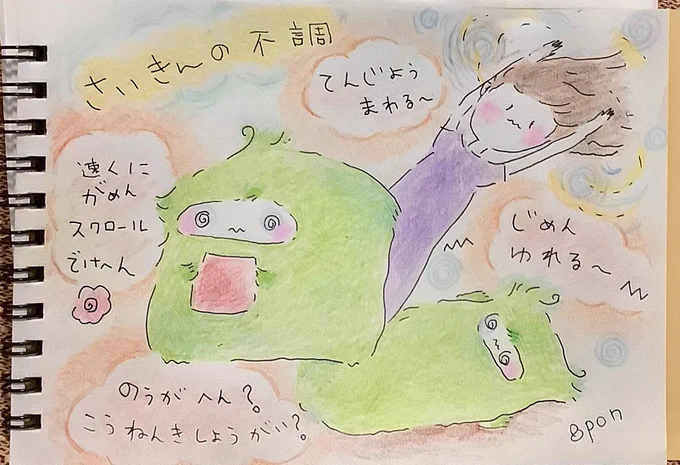 さいきんの不調
てんじょう
まわる〜
速くに
がめん
スクロール
でけへん
じめん
ゆれる〜
のうがへん？
こうねんきしょうがい？
8pon